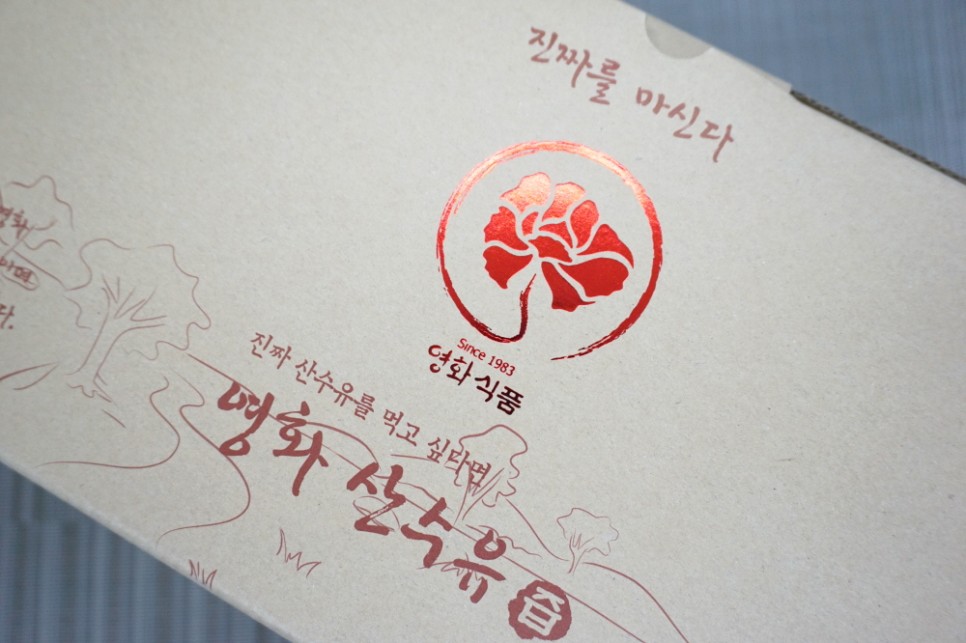 진짜를 마신다
Since 1983
영화식품
진짜 산수유를 먹고 싶다면
영화 산수유 즙
다.